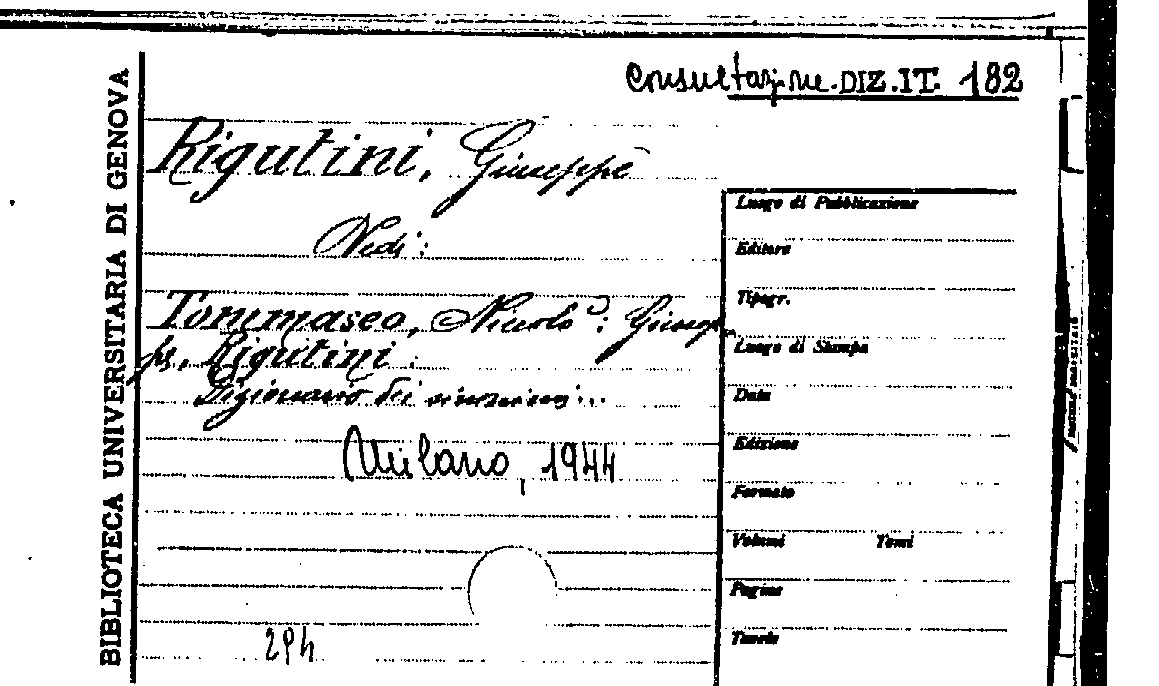 Consultazione.DIZ.IT. 182
BIBLIOTECA UNIVERSITARIA DI GENOVA
Rigutini, Giuseppe
Vedi:
Tommaseo, Niccolò: Giusep
pe, Rigutini:
Dizionario dei sinonimi...
Milano, 1944
294
Luogo di Pubblicazione
Editore
Tipogr.
Luogo di Stampa
Data
Edizione
Formato
Volumi Tomi
Pagine
Tavole